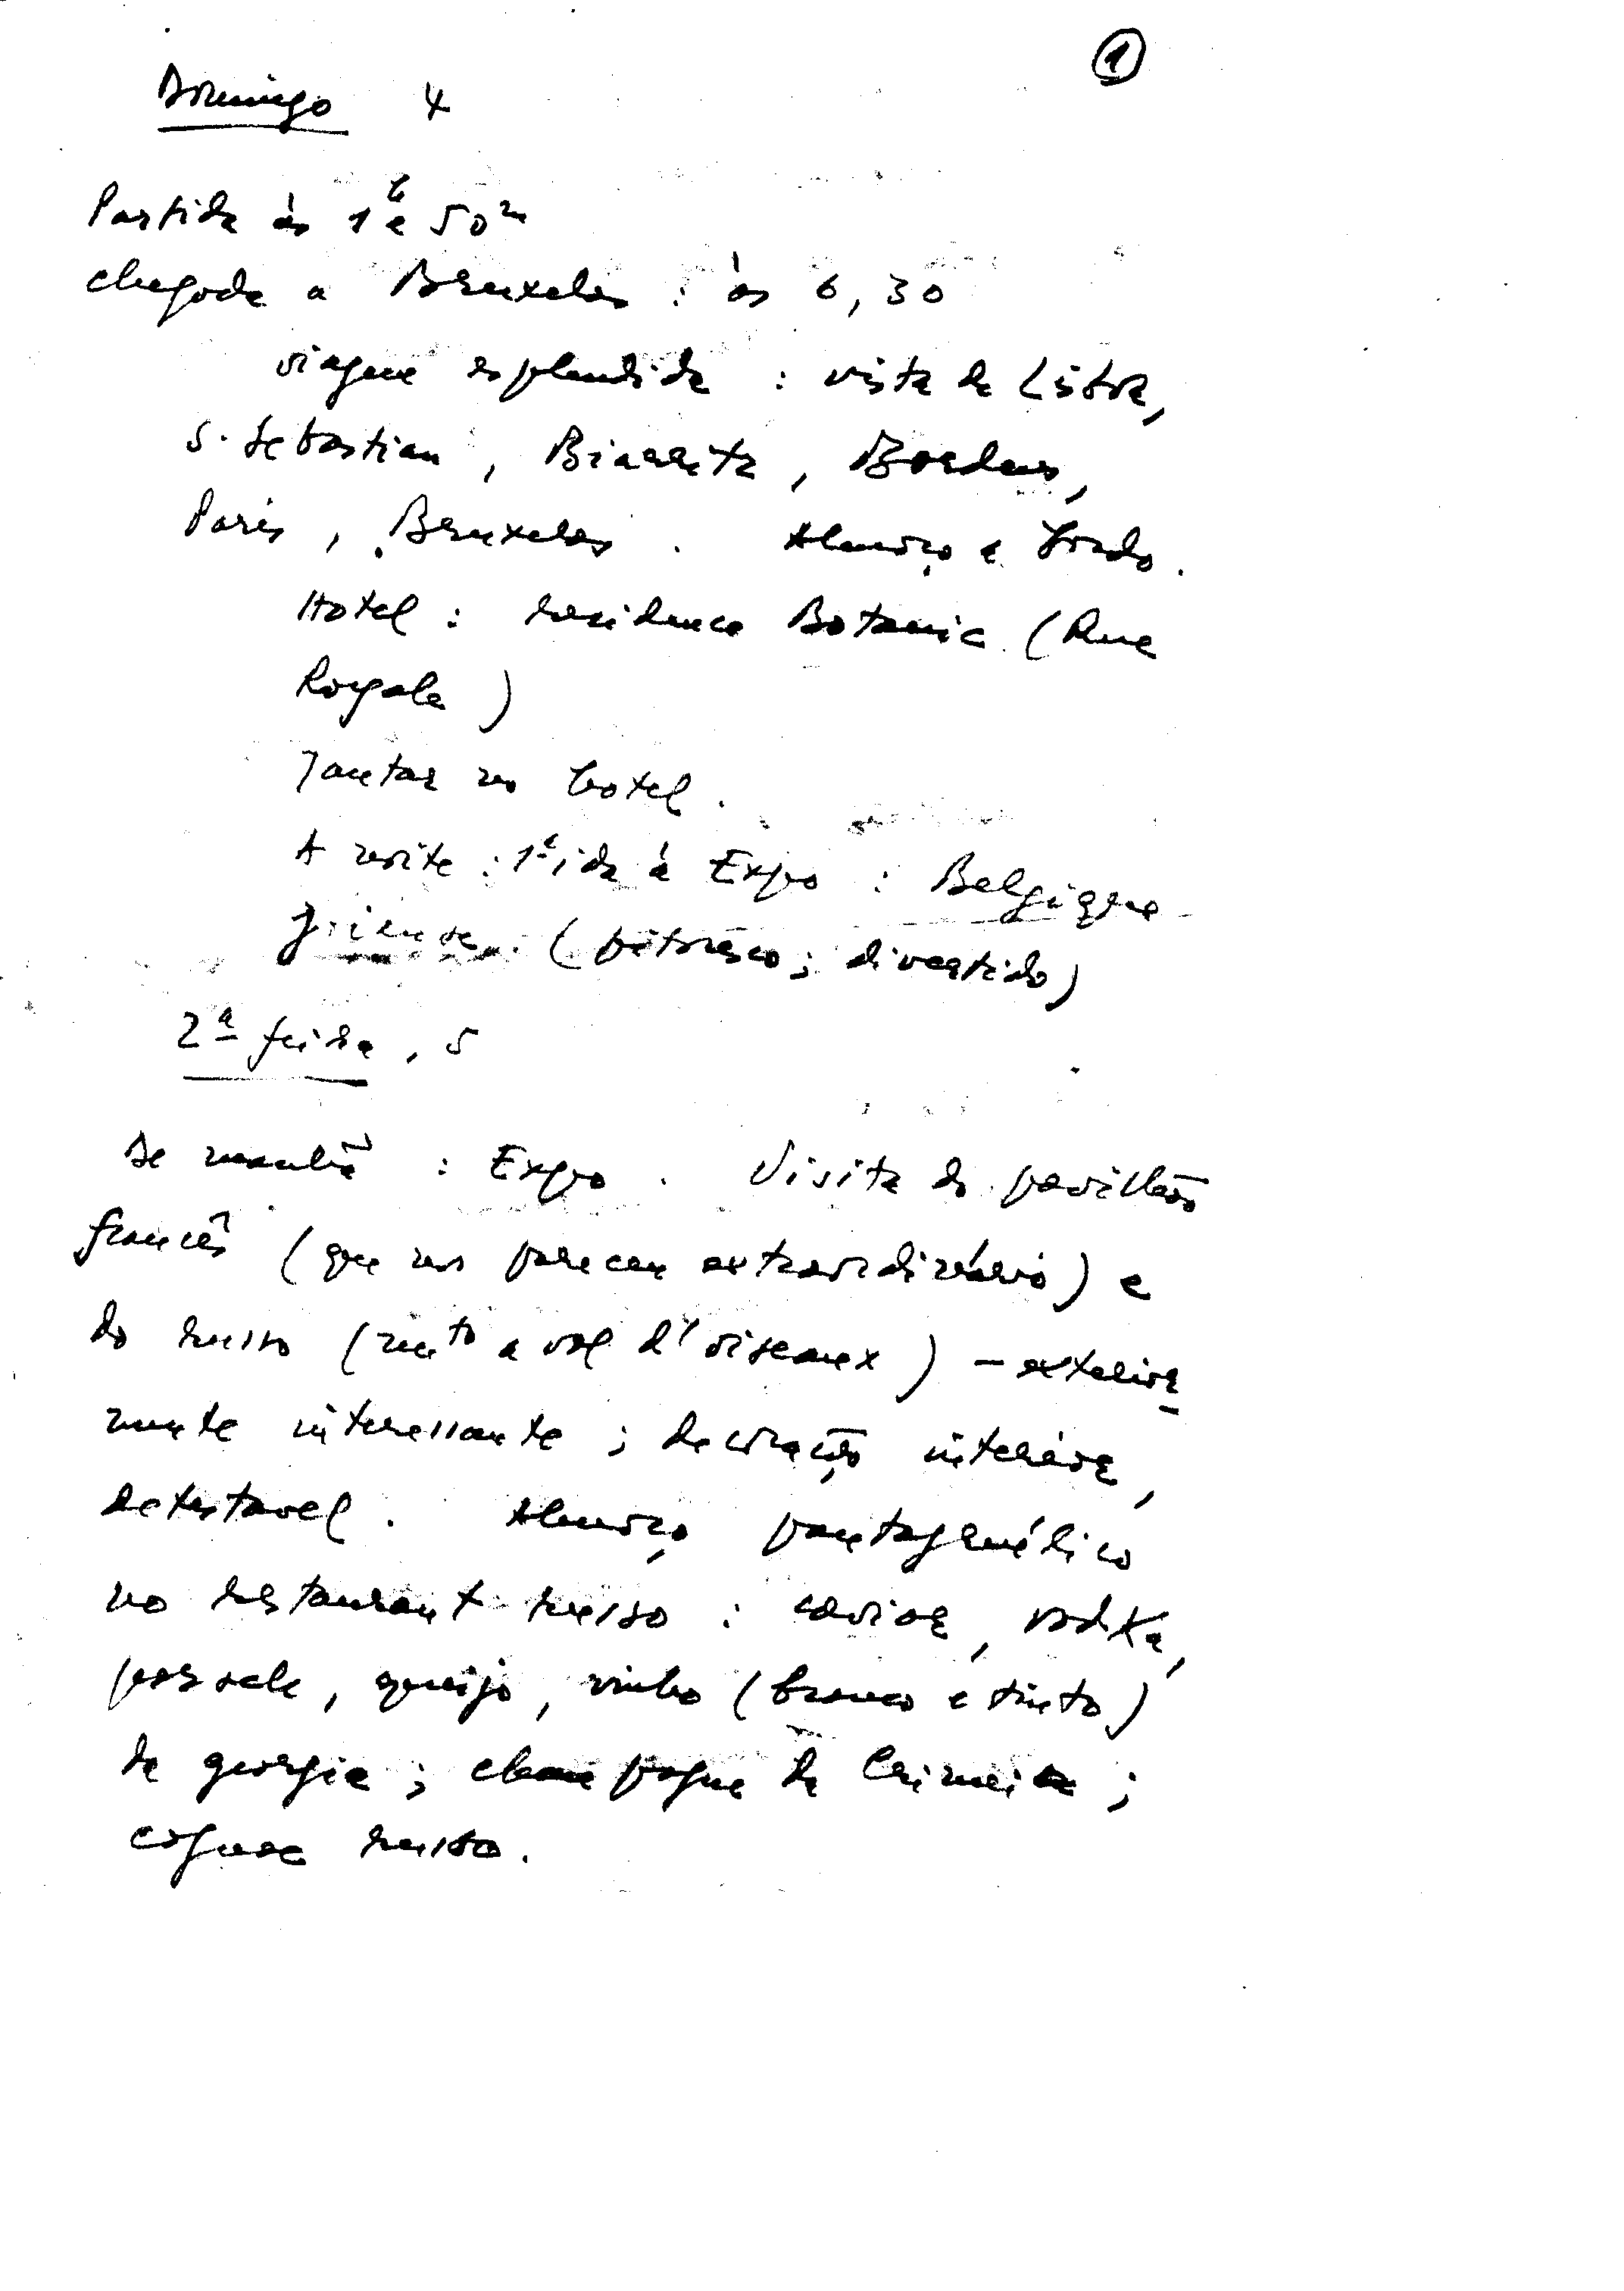 1
Domingo 4
Partida às 1h e 50m
chegada a Bruxelas : às 6,30
viagem esplendida : vista de Lisboa,
S. Sebastian, Biarritz, Bordeus,
Paris, Bruxelas. Almoço a bordo.
Hotel : residence Botanic (Rue
Royale)
Jantar no hotel.
A noite : 1ª ida à Expo : Belgique
joieuse (pitoresco; divertido)
2ª feira, 5
De manhã : Expo. Visita do pavilhão
francês (que nos pareceu extraordinário) e
do russo (mto a vol d'oiseaux) – exterior
mente interessante; decoração interior,
detestavel. Almoço pantagruélico
no restaurant russo : caviar, vodka,
queijo, vinho (branco e tinto)
da georgia; champagne da Crimeia;
cognac russo.